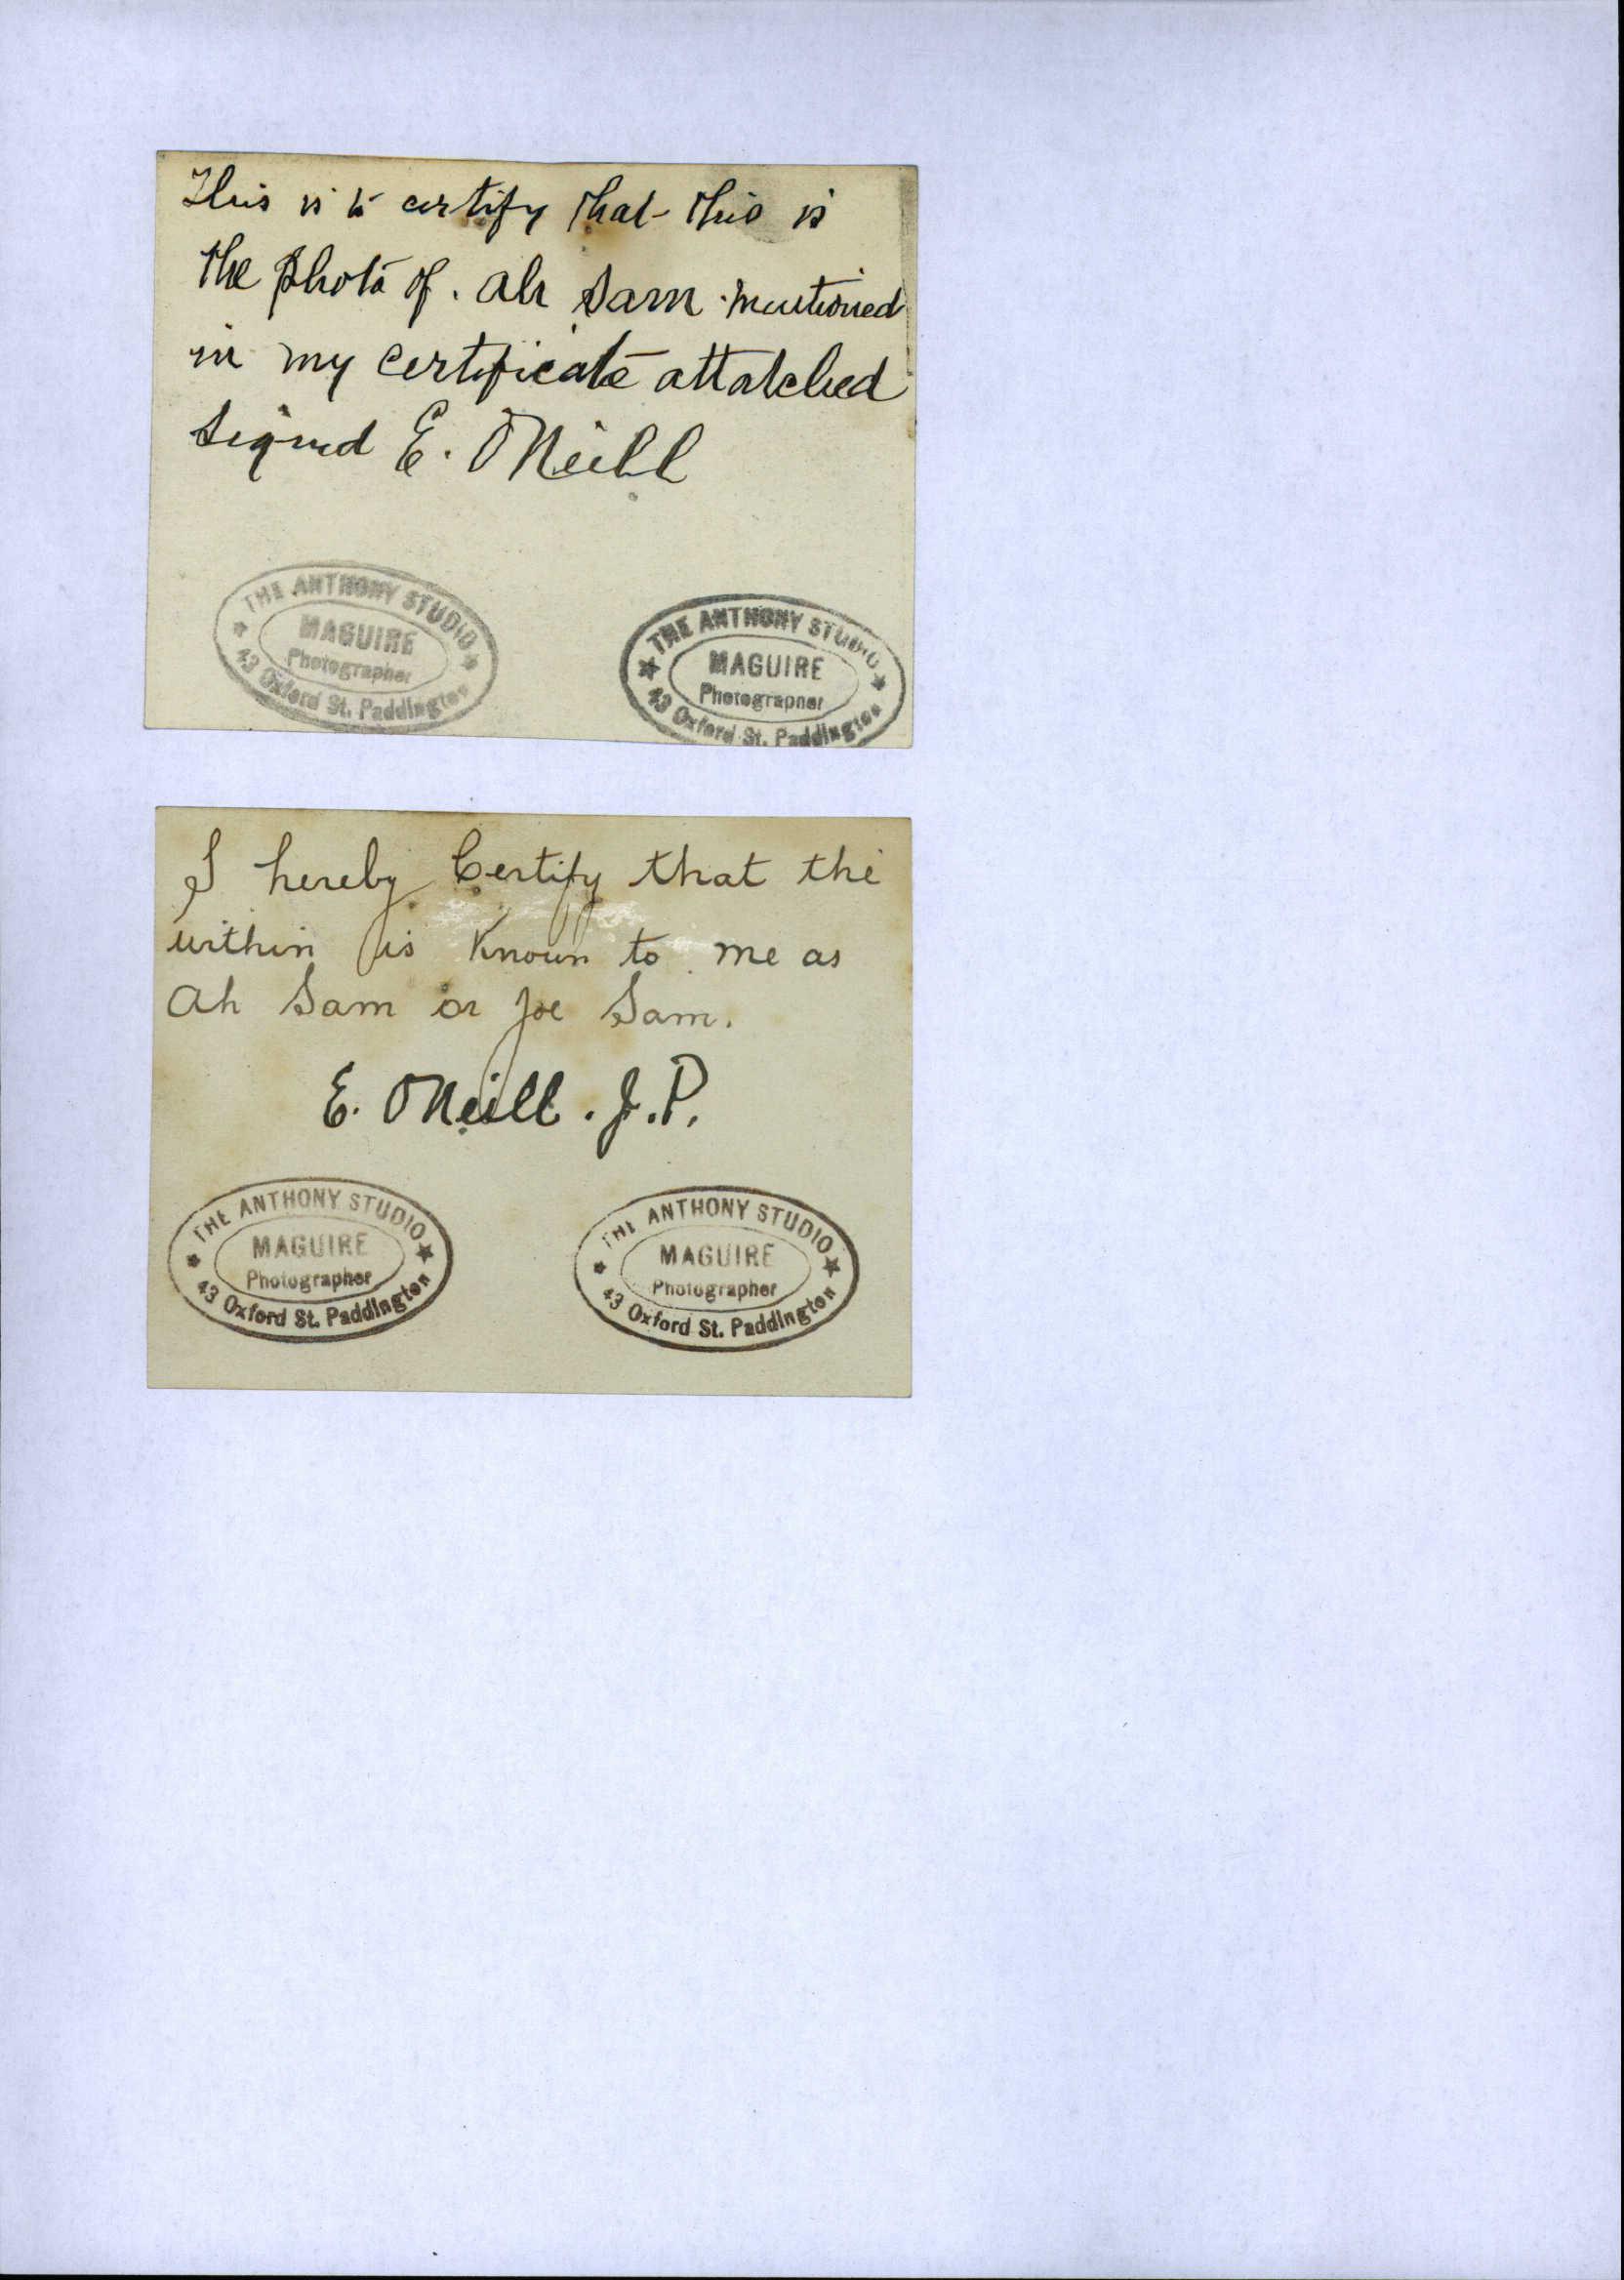 This is to certify that this is
the photo of. Ah Sam mentioned
in my certificate attatched
signed E. ONeill
THE ANTHONY STUDIO
MAGUIRE
Photographer
43 Oxford St. Paddington
THE ANTHONY STUDIO
MAGUIRE
Photographer
43 Oxford St. Paddington
I hereby Certify that the
within is Known to me as
Ah Sam or Joe Sam.
E. ONeill. J.P.
THE ANTHONY STUDIO
MAGUIRE
Photographer
43 Oxford St. Paddington
THE ANTHONY STUDIO
MAGUIRE
Photographer
43 Oxford St. Paddington